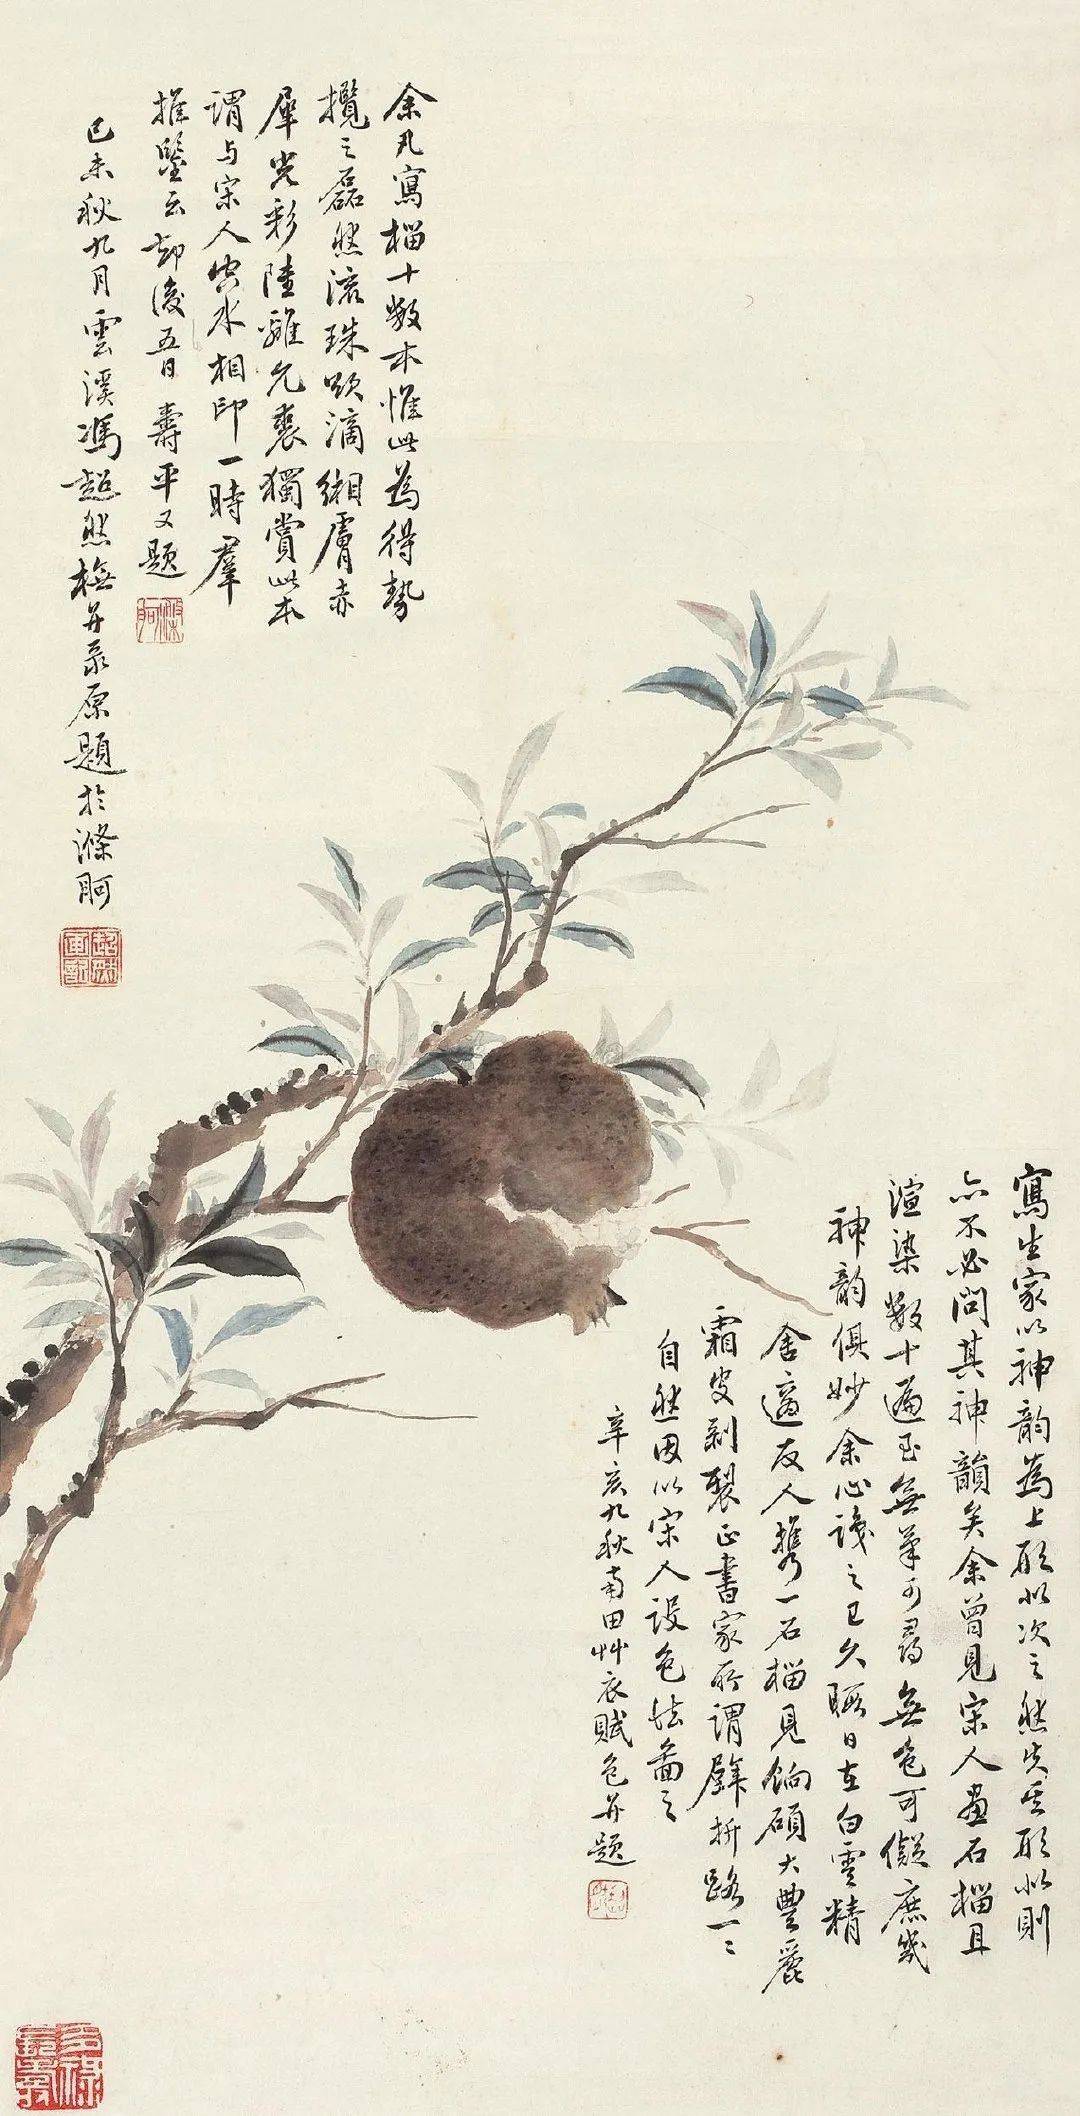 余凡寫榴十數本惟此為得勢
攬之磊然滚珠欲滴緗膚赤
犀光彩陸離允裘獨賞此本
謂與宋人穴水相印一時羣
推鑒云却後五日壽平又題
己未秋九月雲溪馮超然橅并录原題於滌舸
滌舸
超然畫記
寫生家以神韵為上形似次之然失其形似則
亦不必問其神韻矣余曾見宋人畫石榴且
渲染數十遍至無筆可尋無色可儗庶幾
神韵俱妙余心識之已久暇日在白雲精
舍適友人携一石榴見餉碩大豐麗
霜皮剥裂正書家所謂屋拆路一一
自然因以宋人設色法圖之
辛亥九秋南田艸衣賦色并題